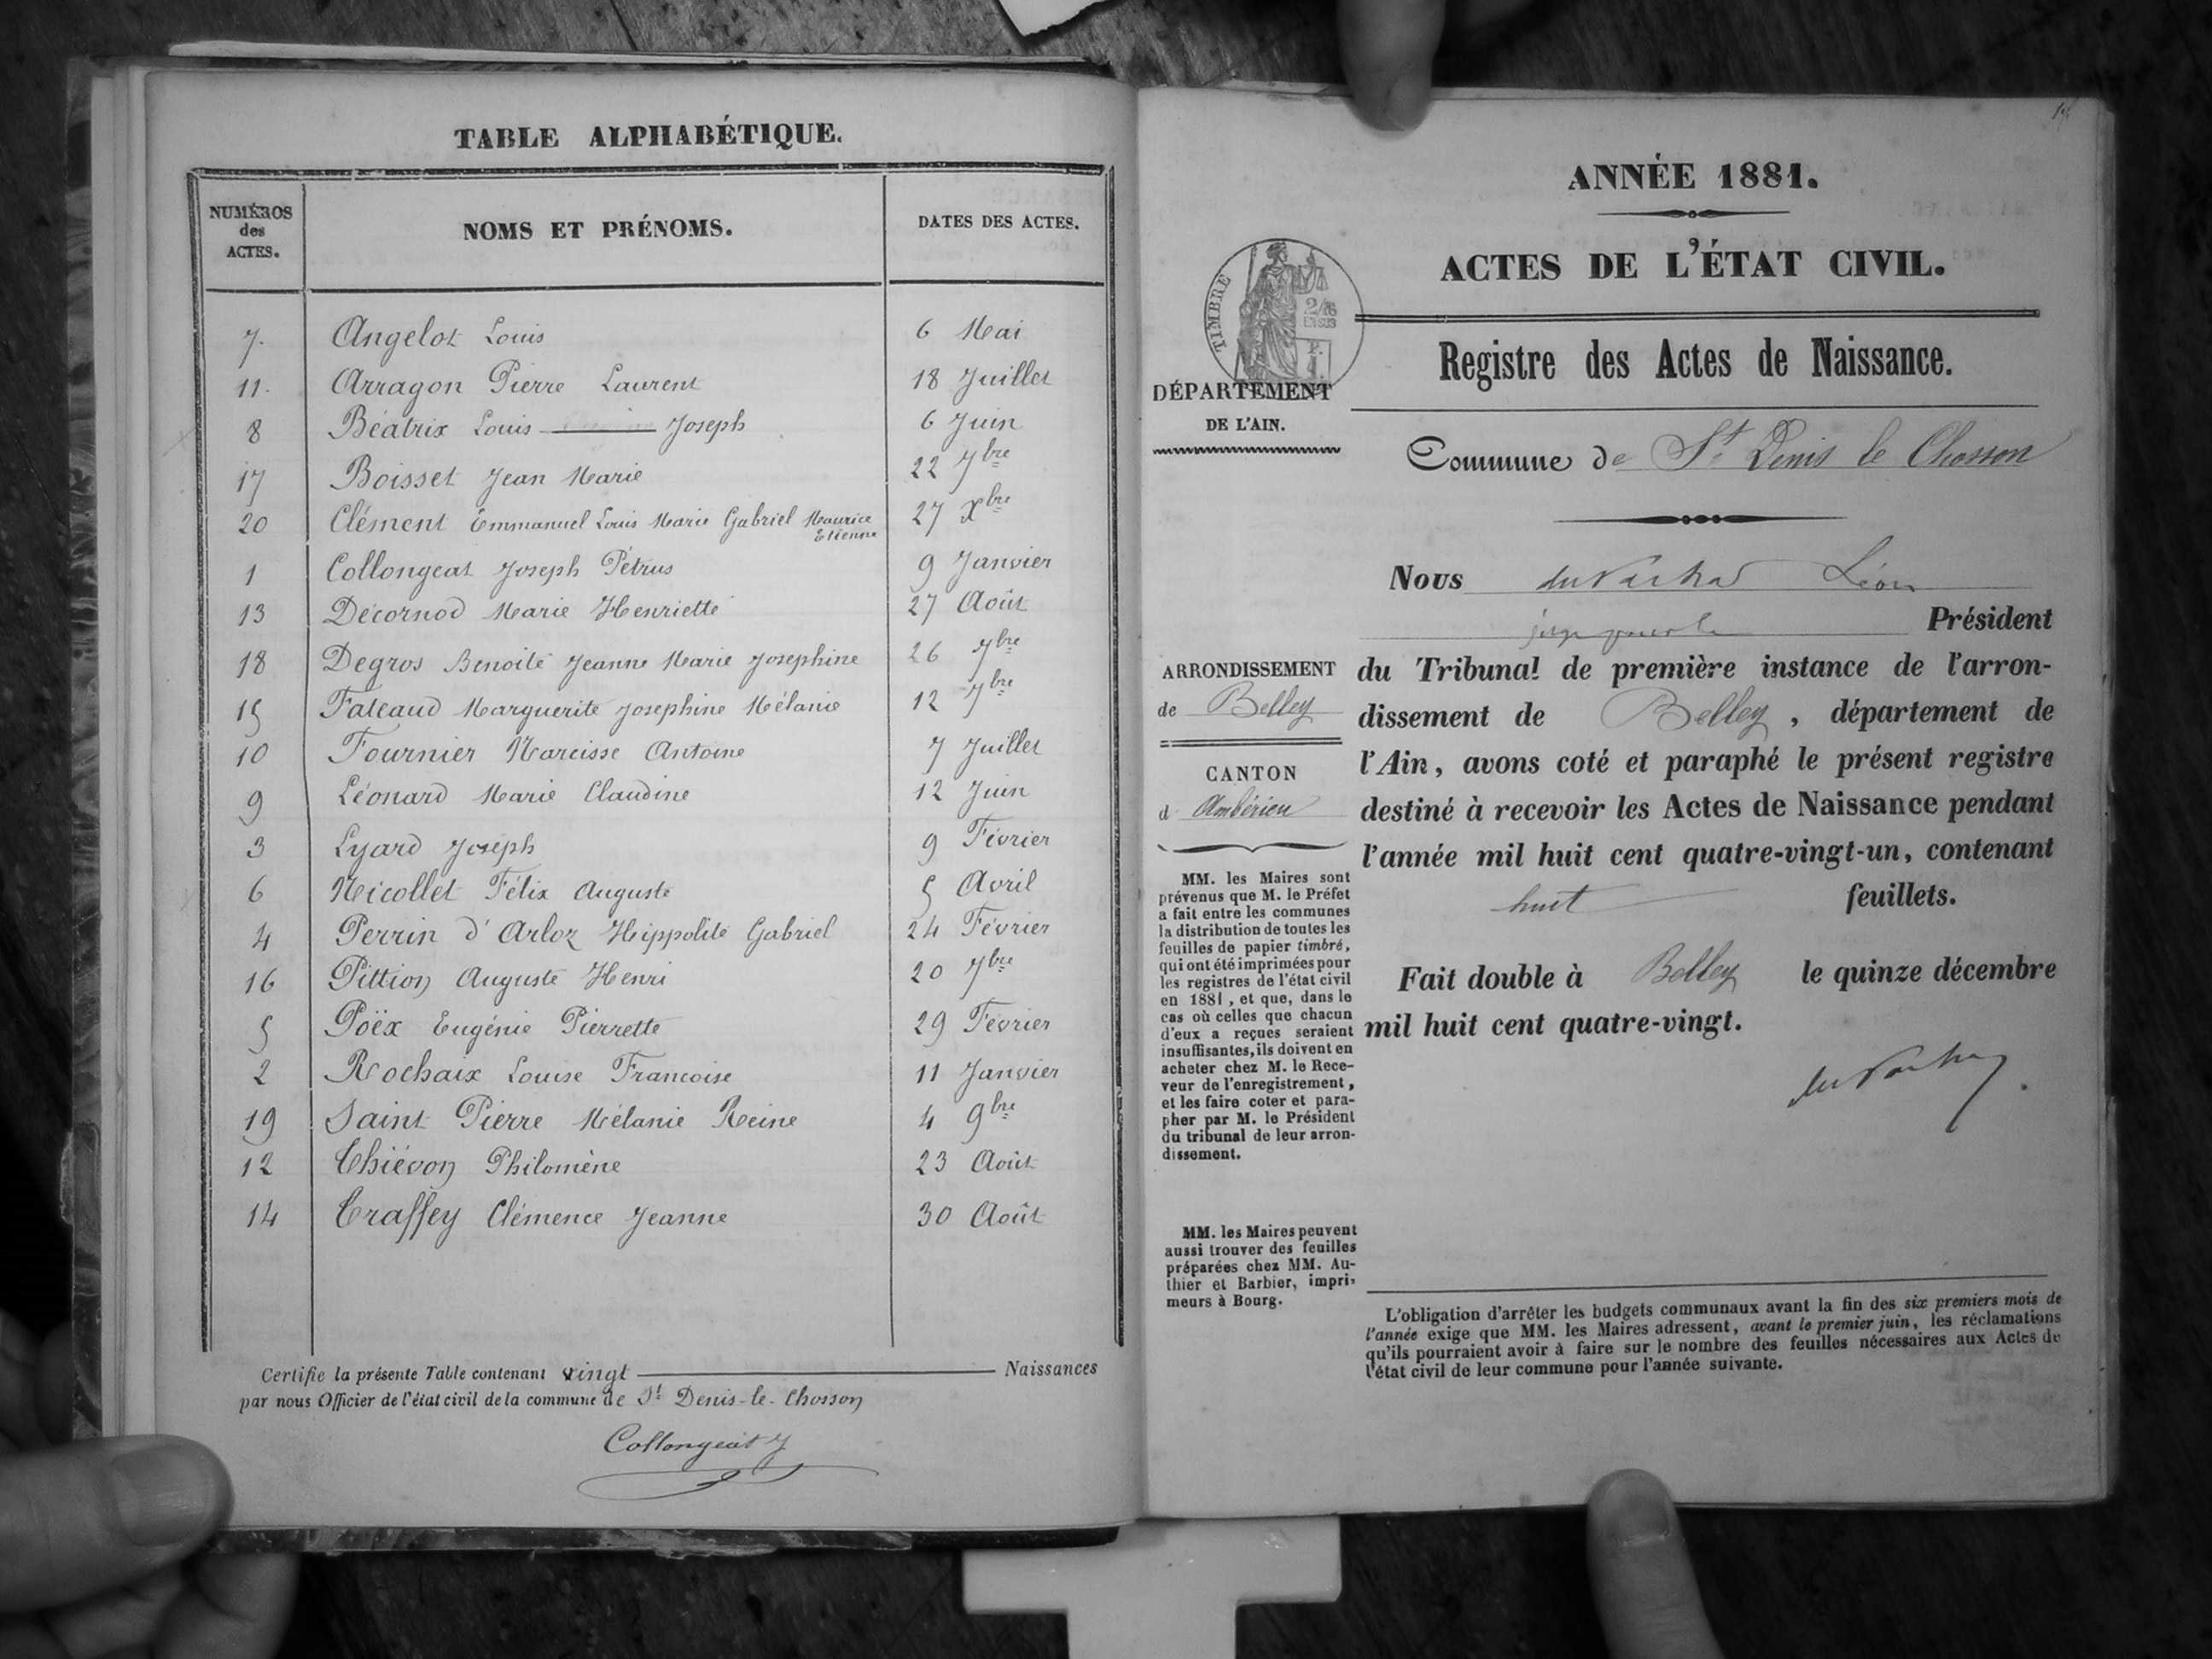 TABLE ALPHABÉTIQUE.
NUMÉROS des ACTES.
NOMS ET PRÉNOMS.
DATES DES ACTES.
7. Angelot Louis 6 Mai
11. Arragon Pierre Laurent 18 Juillet
8 Béatrix Louis Joseph 6 Juin
17 Boisset Jean Marie 22 7bre
20 Clément Emmanuel Louis Marie Gabriel Maurice Etienne 27 Xbre
1 Collongeat Joseph Pétrus 9 Janvier
13 Décornod Marie Henriette 27 Août
18 Degros Benoite Jeanne Marie Josephine 26 7bre
15 Falcaud Marguerite Josephine Mélanie 12 7bre
10 Fournier Narcisse Antoine 7 Juillet
9 Léonard Marie Claudine 12 Juin
3 Lyard Joseph 9 Février
6 Nicollet Félix Auguste 5 Avril
4 Perrin d'Arloz Hippolite Gabriel 24 Février
16 Pittion Auguste Henri 20 7bre
5 Poëx Eugénie Pierrette 29 Février
2 Rochaix Louise Francoise 11 Janvier
19 Saint Pierre Mélanie Reine 4 9bre
12 Thiévon Philomène 23 Août
14 Traffey Clémence Jeanne 30 Août
Certifie la présente Table contenant vingt Naissances
par nous Officier de l'état civil de la commune de St Denis-le-Chosson
Collongeat J
ANNÉE 1881.
ACTES DE L'ÉTAT CIVIL.
TIMBRE
2/10
EN SUS
Registre des Actes de Naissance.
DÉPARTEMENT
DE L'AIN.
Commune de St Denis le Chosson
Nous Léon
Président
ARRONDISSEMENT
de Belley
CANTON
d Ambérieu
du Tribunal de première instance de l'arron-
dissement de Belley, département de
l'Ain, avons coté et paraphé le présent registre
destiné à recevoir les Actes de Naissance pendant
l'année mil huit cent quatre-vingt-un, contenant
huit feuillets.
Fait double à Belley le quinze décembre
mil huit cent quatre-vingt.
MM. les Maires sont
prévenus que M. le Préfet
a fait entre les communes
la distribution de toutes les
feuilles de papier timbré,
qui ont été imprimées pour
les registres de l'état civil
en 1881, et que, dans le
cas où celles que chacun
d'eux a reçues seraient
insuffisantes, ils doivent en
acheter chez M. le Rece-
veur de l'enregistrement,
et les faire coter et para-
pher par M. le Président
du tribunal de leur arron-
dissement.
MM. les Maires peuvent
aussi trouver des feuilles
préparées chez MM. Au-
thier et Barbier, impri-
meurs à Bourg.
L'obligation d'arrêter les budgets communaux avant la fin des six premiers mois de
l'année exige que MM. les Maires adressent, avant le premier juin, les réclamations
qu'ils pourraient avoir à faire sur le nombre des feuilles nécessaires aux Actes de
l'état civil de leur commune pour l'année suivante.